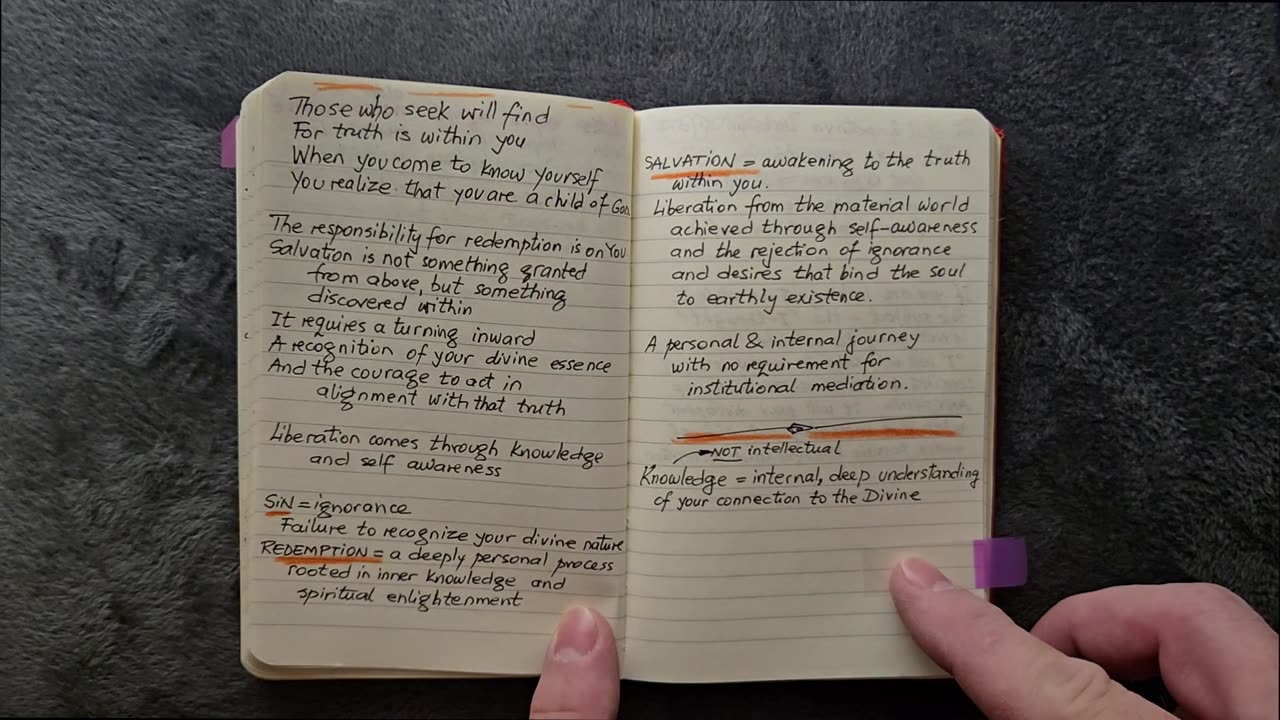 Those who seek will find
For truth is within you
When you come to know yourself
You realize that you are a child of God
The responsibility for redemption is on You
Salvation is not something granted
from above, but something
discovered within
It requires a turning inward
A recognition of your divine essence
And the courage to act in
alignment with that truth
Liberation comes through knowledge
and self awareness
SIN = ignorance
Failure to recognize your divine nature
REDEMPTION = a deeply personal process
rooted in inner knowledge and
spiritual enlightenment
SALVATION = awakening to the truth
within you.
Liberation from the material world
achieved through self-awareness
and the rejection of ignorance
and desires that bind the soul
to earthly existence.
A personal & internal journey
with no requirement for
institutional mediation.
NOT intellectual
Knowledge = internal, deep understanding
of your connection to the Divine